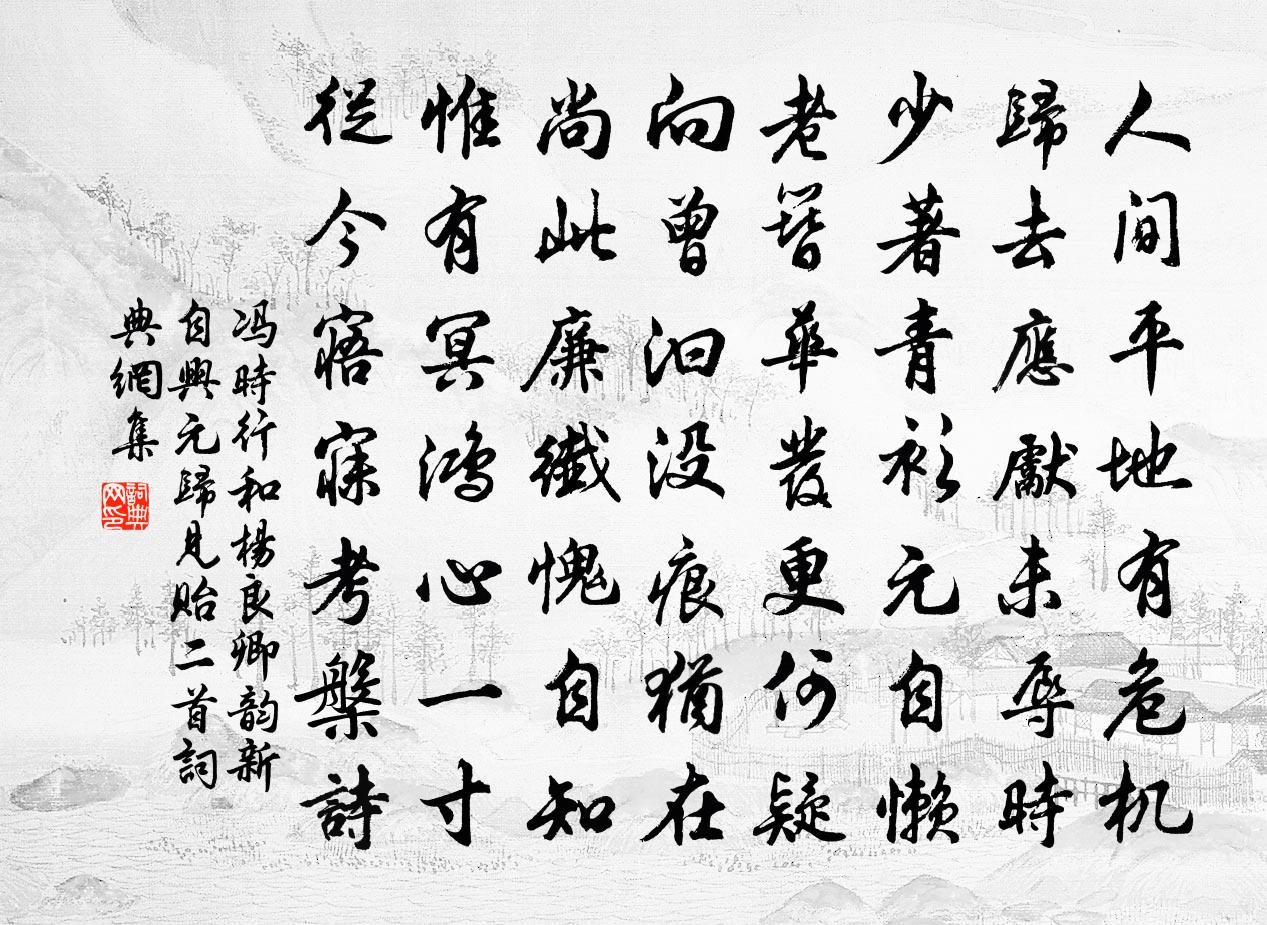 人间平地有危机
歸去應獻未辱時
少著青衫元自懒
老簪華發更何疑
向曾汩没痕猶在
尚此廉纖愧自知
惟有冥鸿心一寸
從今寤寐考槃詩
冯時行和楊良卿韵新
自興元歸見貽二首詞
典網集
詞典網印